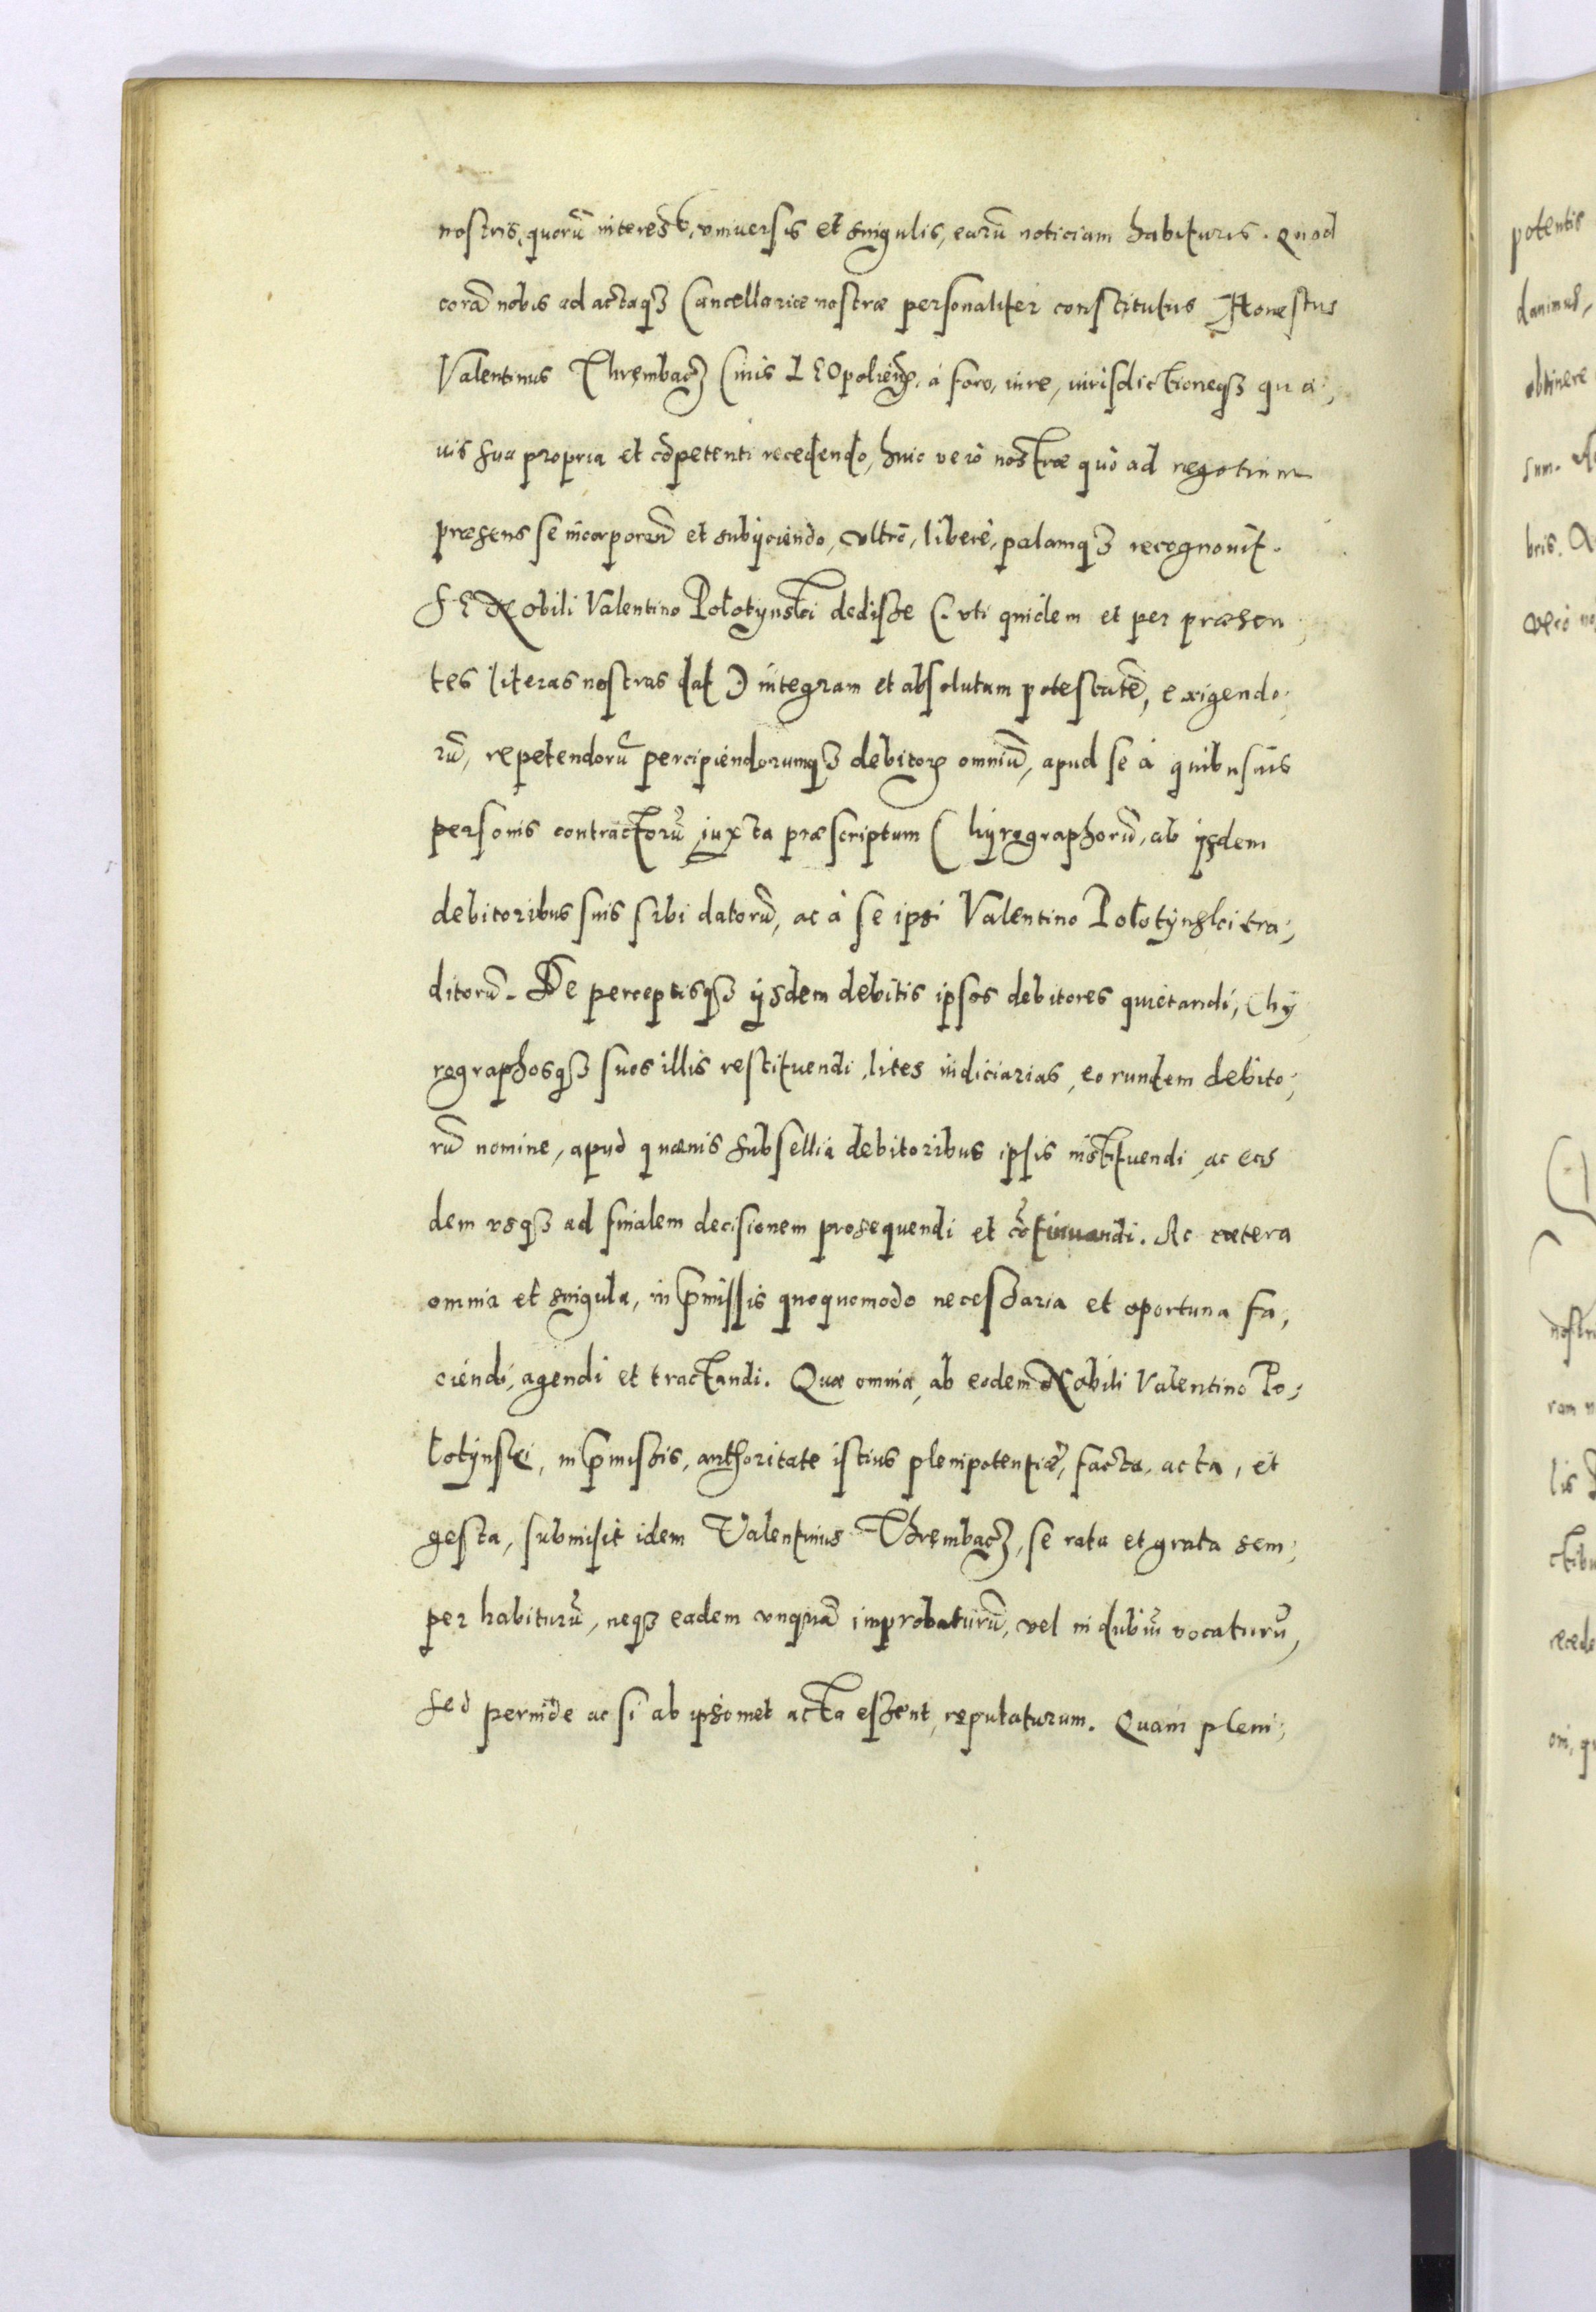 nostris, quorũ interest, vniuersis et singulis, earũ noticiam habituris. Quod
corã nobis ad actaqȝ Cancellariæ nostræ personaliter constitutus Honestus
Valentinus Thrębacȝ Ciuis LEOpolień. à foro, iure, iurisdictioneqȝ qua,
uis sua propria et cõpetenti recedendo, huic verò nostræ quò ad negotium
præsens se incorporan̄ et subijciendo, vltrò, liberè, palamqȝ recognouit.
SE Nobili Valentino Połotynski dedisse (. vti quidem et per præsen,
tes literas nostras dat .) integram et absolutam potestatẽ, exigendo,
rũ, repetendorũ percipiendorumqȝ debitorꝝ omniũ, apud se à quibusuis
personis contractorũ iuxta præscriptum Chyrographorũ, ab ijsdem
debitoribus suis sibi datorũ, ac à se ipsi Valentino Połotynski tra,
ditorũ. De perceptisqȝ ijsdem debitis ipsos debitores quietandi, Chy
rographosqȝ suos illis restituendi, lites iudiciarias, eorundem debito,
rũ nomine, apud quæuis subsellia debitoribus ipsis instituendi, ac eas
dem vsqȝ ad finalem decisionem prosequendi et cõtinuandi. Ac cætera
omnia et singula, in p̃missis quoquomodo necessaria et oportuna fa,
ciendi, agendi et tractandi. Quæ omnia, ab eodem Nobili Valentino Po,
łotynski, in p̃missis, authoritate istius plenipotentiæ, facta, acta, et
gesta, submisit idem Valentinus Thrembacȝ, se rata et grata sem,
per habiturũ, neqȝ eadem vnquã improbaturũ, vel in dubiũ vocaturũ,
sed perinde ac si ab ipsomet acta essent, reputaturum. Quam pleni,
potentis
danimus,
obtinere
sum.
bris.
verò no
nostr
ram n
lis
ctibu
recede
oni, qu